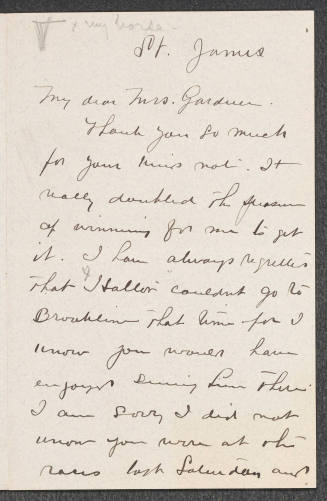 x my horse -
St. James
My dear Mrs. Gardner.
Thank you so much
for your kind note. It
really doubled the pleasure
of winning for me to get
it. I have always regretted
that couldn't go to
Brookline that time for I
know you would have
enjoyed seeing him there.
I am sorry I did not
know you were at the
races last Saturday and